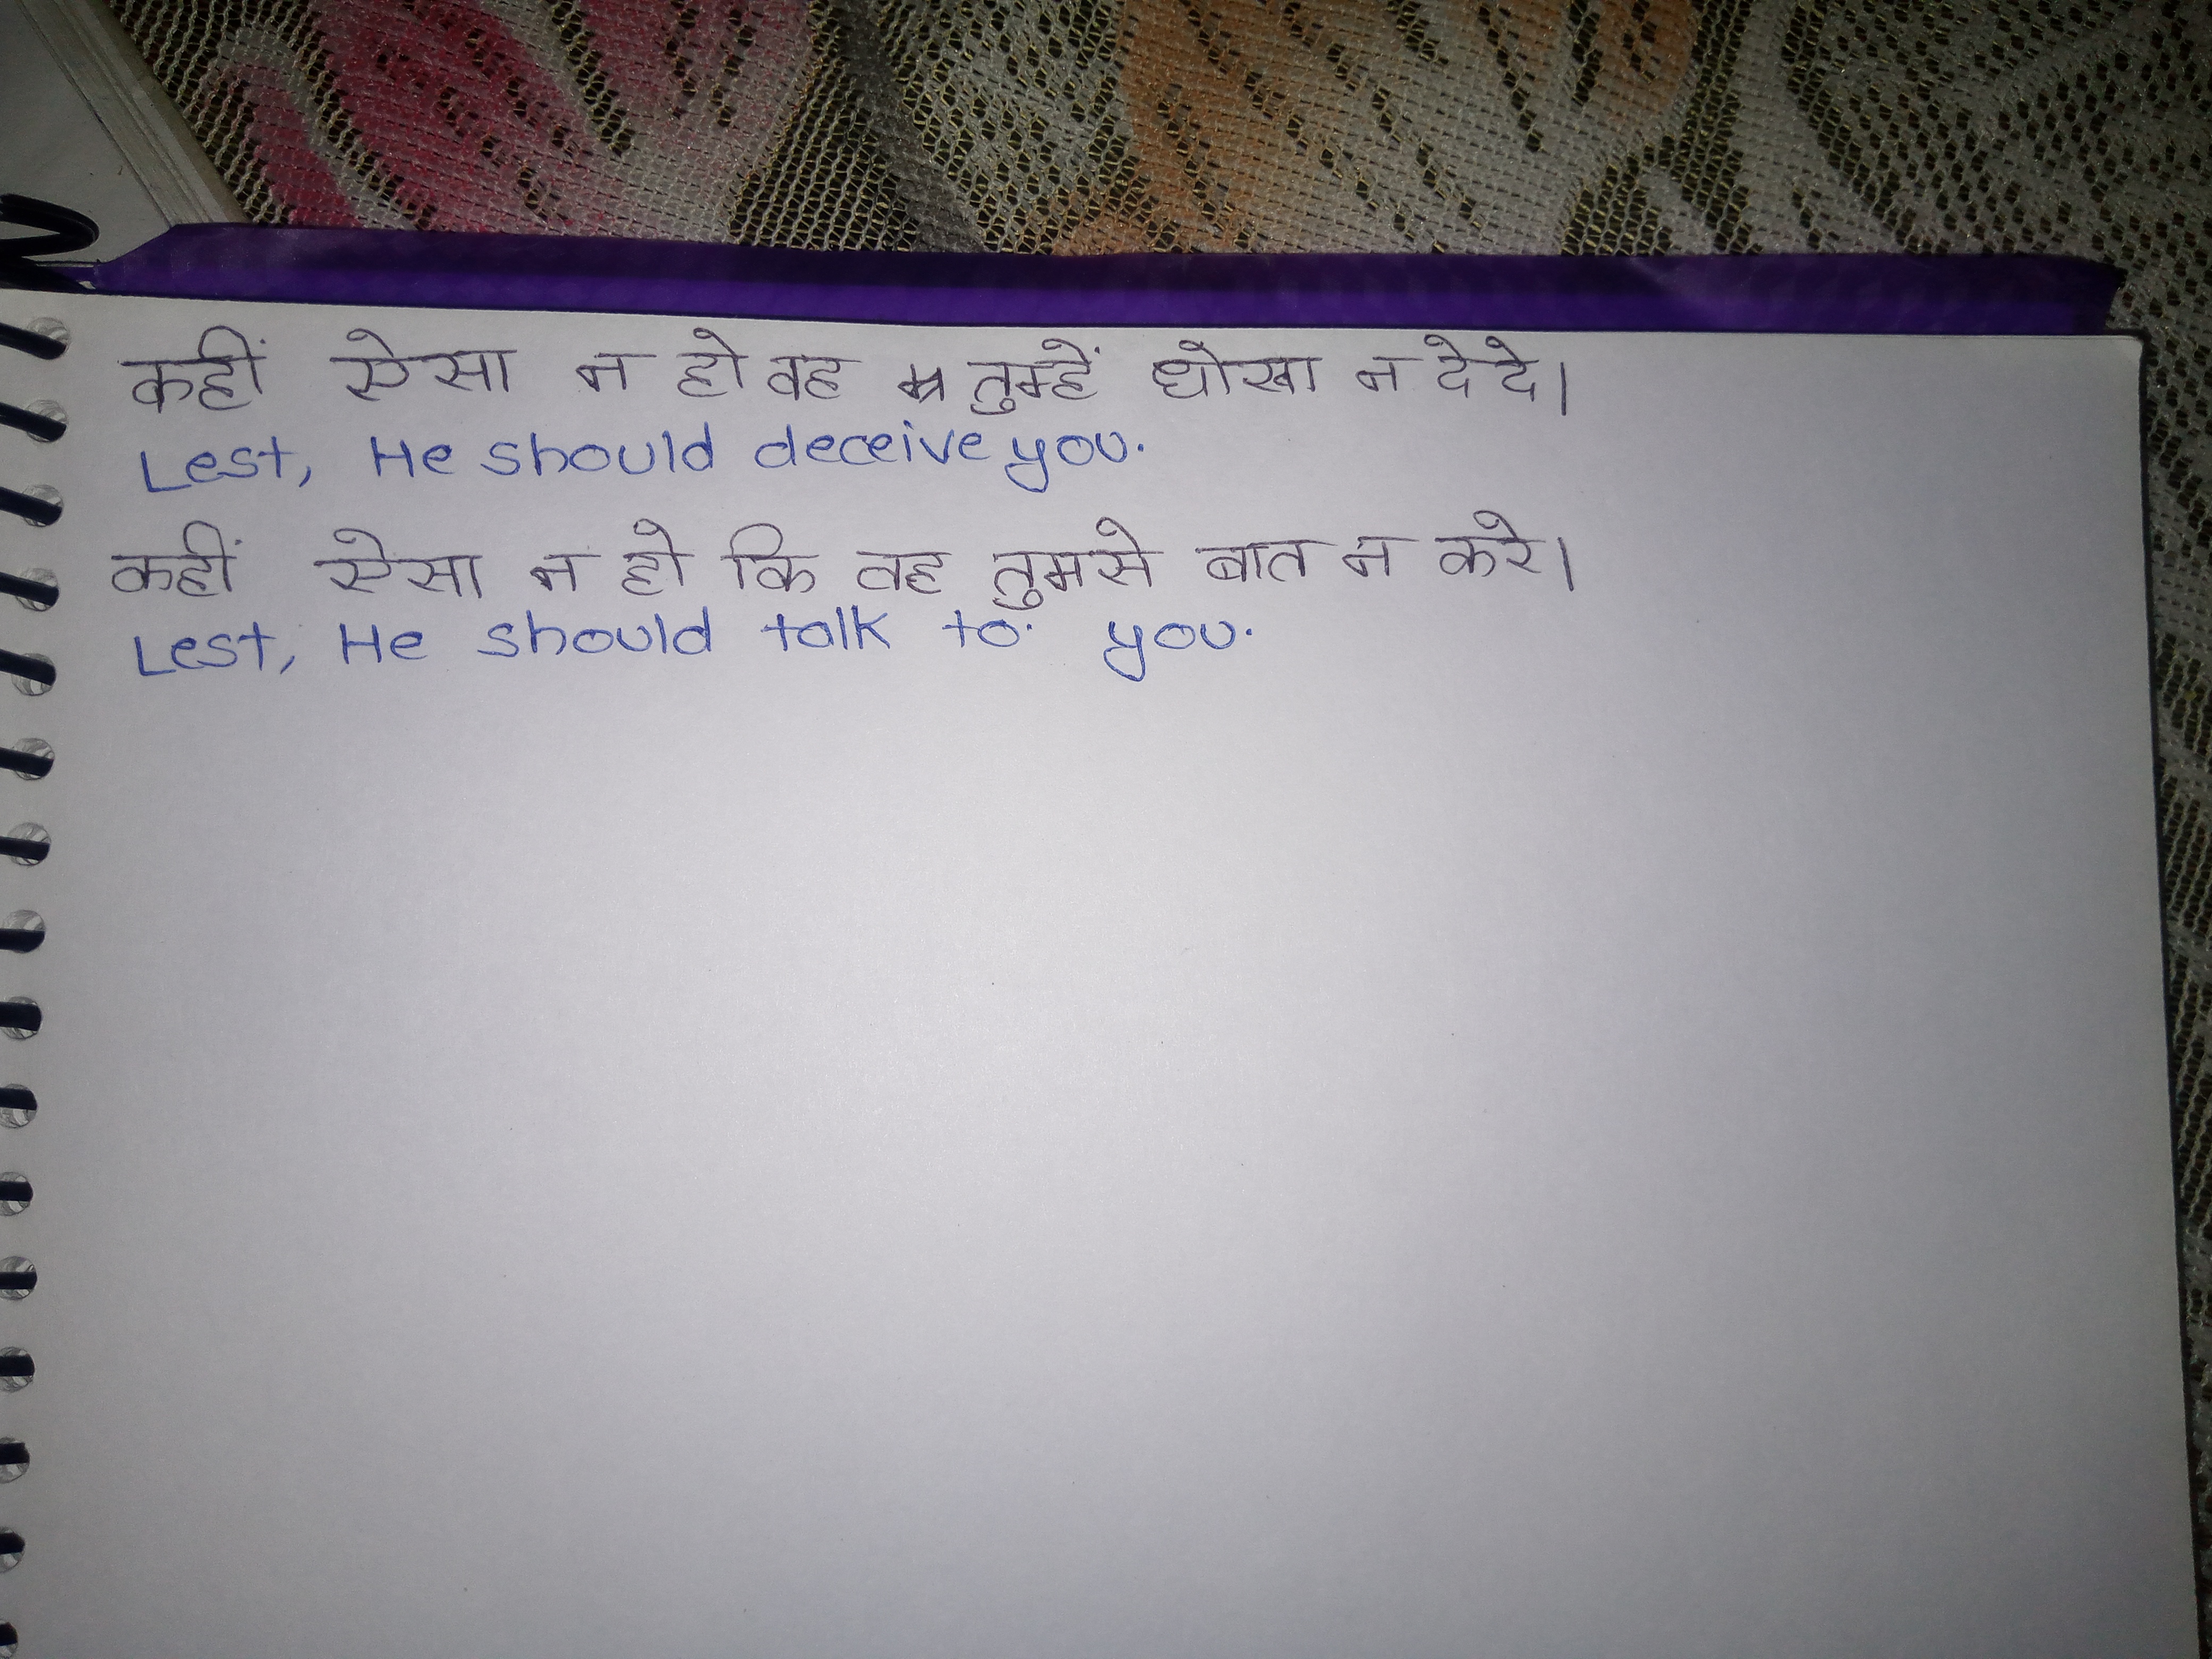 कहीं ऐसा न हो वह तुम्हें धोखा न दे दे।
Lest, He should deceive you.
कहीं ऐसा न हो कि वह तुमसे बात न करे।
Lest, He should talk to. you.